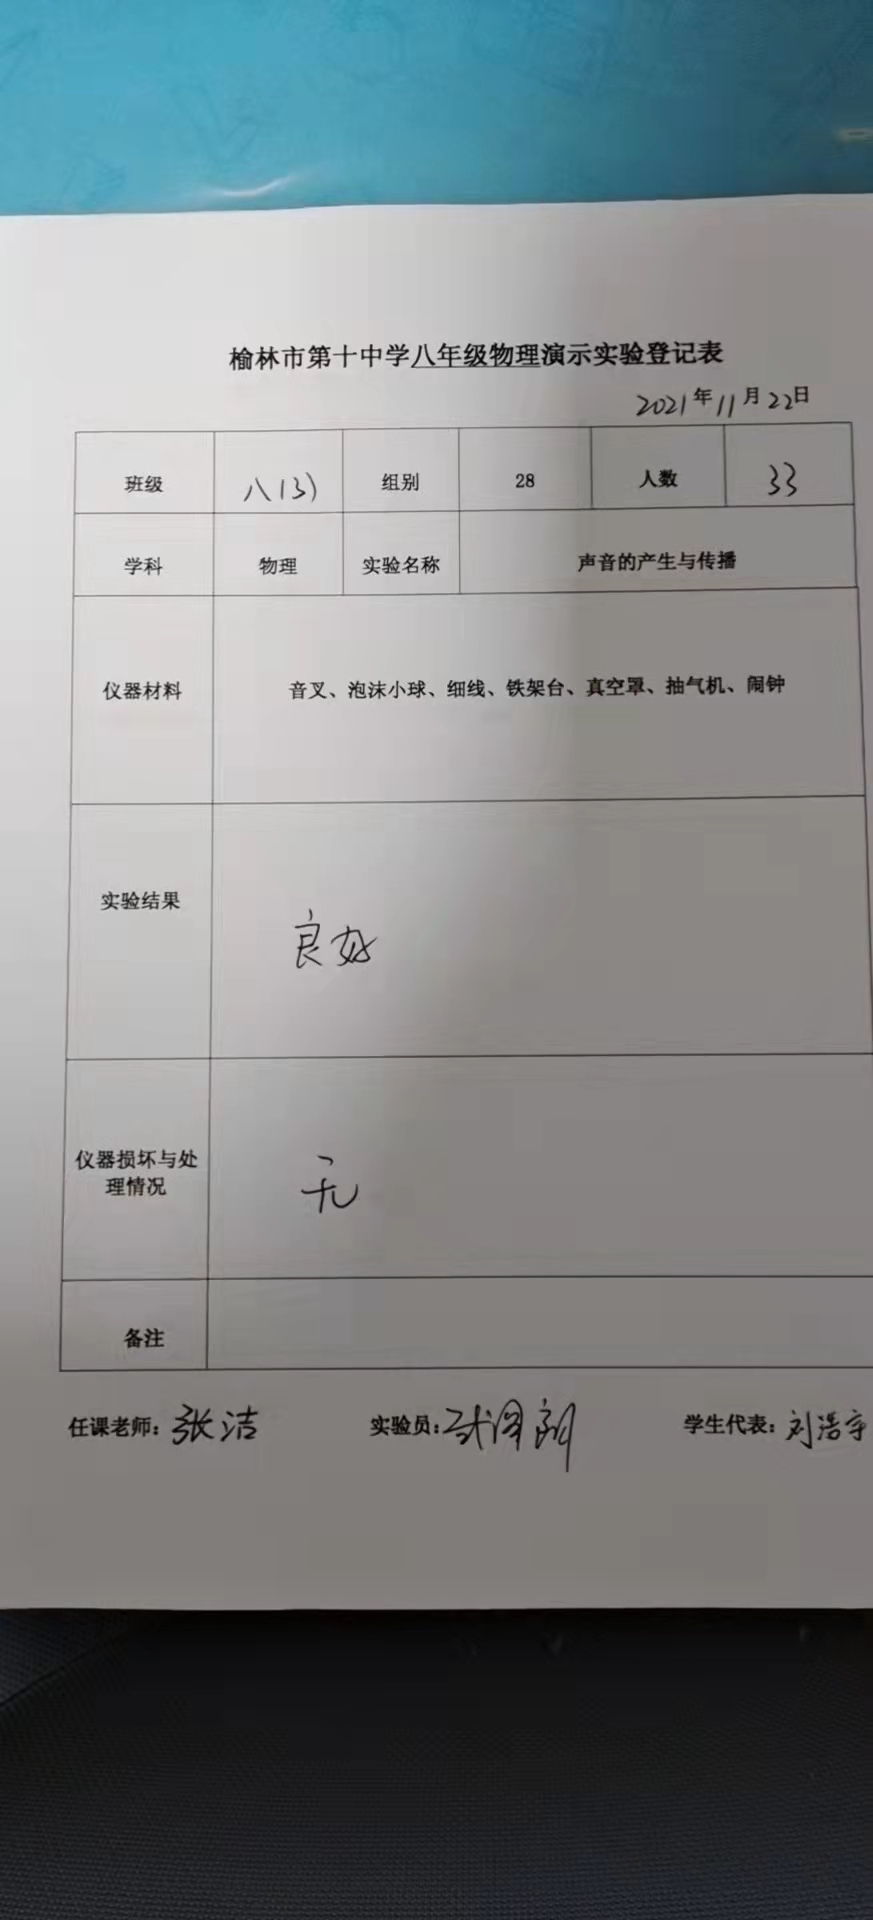 榆林市第十中学八年级物理演示实验登记表
2021年11月22日
班级 八(3) 组别 28 人数 33
学科 物理 实验名称 声音的产生与传播
仪器材料 音叉、泡沫小球、细线、铁架台、真空罩、抽气机、闹钟
实验结果 良好
仪器损坏与处
理情况 无
备注
任课老师: 张洁 实验员: 学生代表: 刘浩宇